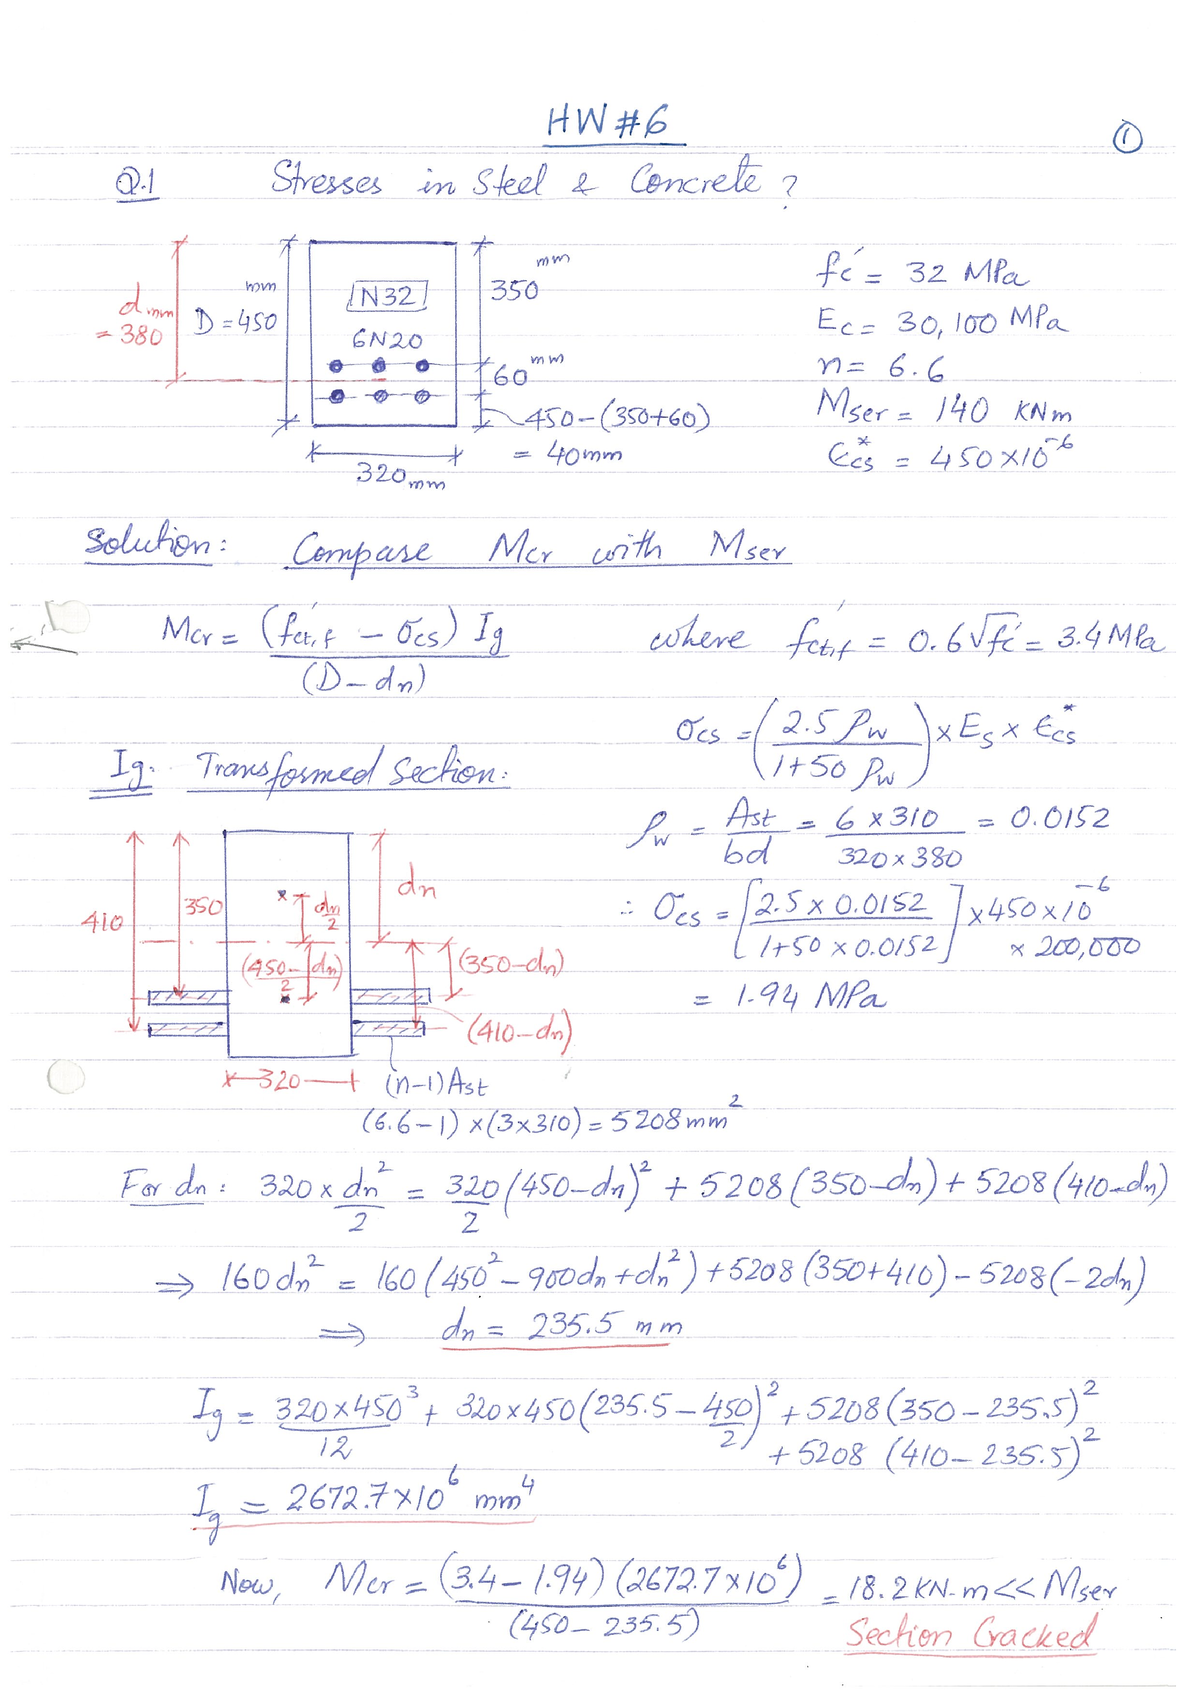 HW #6
①
Q.1 Stresses in Steel & Concrete ?
d mm = 380
mm D = 450
N32
6N20
mm 350
mm 60
450-(350+60)
= 40mm
320 mm
fc' = 32 MPa
Ec = 30,100 MPa
n = 6.6
Mser = 140 KNm
Ecs* = 450×10^-6
Solution: Compare Mcr with Mser
Mcr = (f'ct,f - σcs) Ig / (D - dn) where f'ct,f = 0.6√fc' = 3.4 MPa
σcs = (2.5 ρw / 1+50 ρw) × Es × Ecs*
Ig. Transformed Section:
ρw = Ast / bd = 6 × 310 / 320 × 380 = 0.0152
∴ σcs = [2.5 × 0.0152 / 1+50 × 0.0152] × 450 × 10^-6 × 200,000
= 1.94 MPa
410
350
dn/2
dn
(450-dn)/2
(350-dn)
(410-dn)
320
(n-1) Ast
(6.6-1) × (3×310) = 5208 mm²
For dn: 320 × dn²/2 = 320/2 (450-dn)² + 5208 (350-dn) + 5208 (410-dn)
⇒ 160 dn² = 160 (450² - 900dn + dn²) + 5208 (350+410) - 5208 (-2dn)
⇒ dn = 235.5 mm
Ig = 320×450³/12 + 320×450 (235.5 - 450/2)² + 5208 (350 - 235.5)²
+ 5208 (410 - 235.5)²
Ig = 2672.7×10^6 mm⁴
Now, Mcr = (3.4 - 1.94) (2672.7×10^6) / (450 - 235.5) = 18.2 KN-m << Mser
Section Cracked